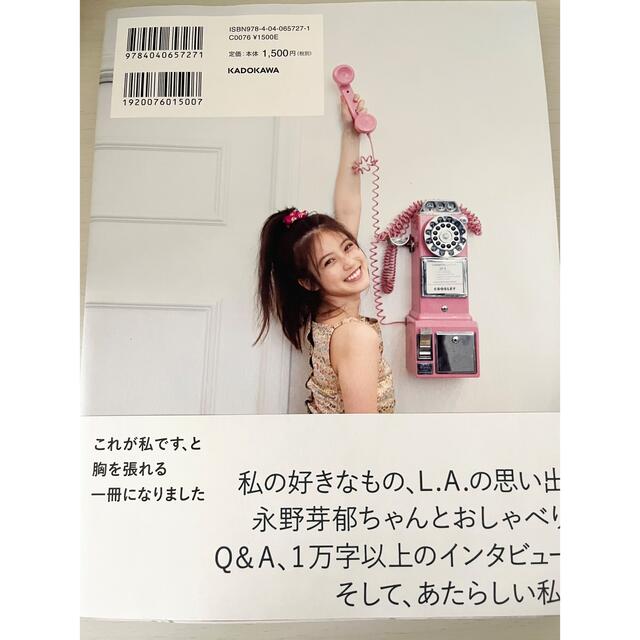 9784040657271
1920076015007
ISBN978-4-04-065727-1
C0076 ¥1500E
定価:本体 1,500円(税別)
KADOKAWA
CROSLEY
これが私です、と
胸を張れる
一冊になりました
私の好きなもの、L.A.の思い出
永野芽郁ちゃんとおしゃべり
Q&A、1万字以上のインタビュー
そして、あたらしい私